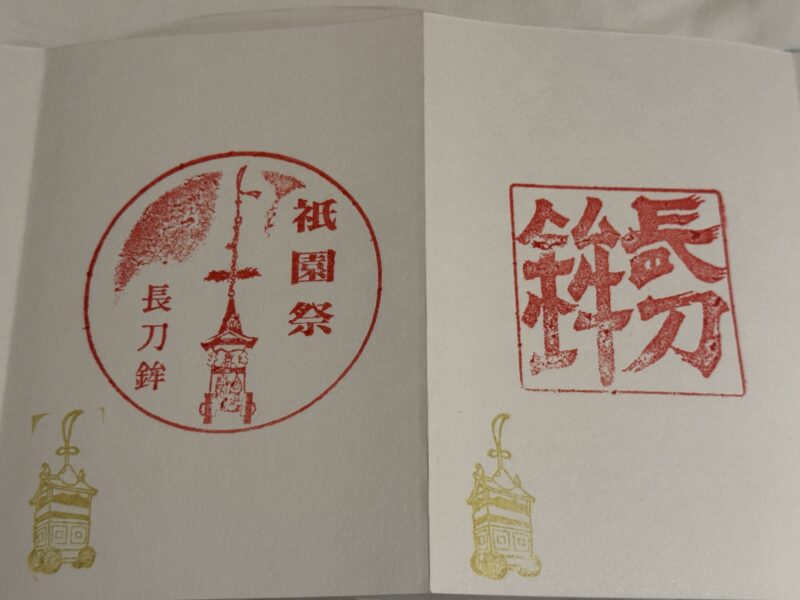 祇園祭
長刀鉾
長刀
鉾